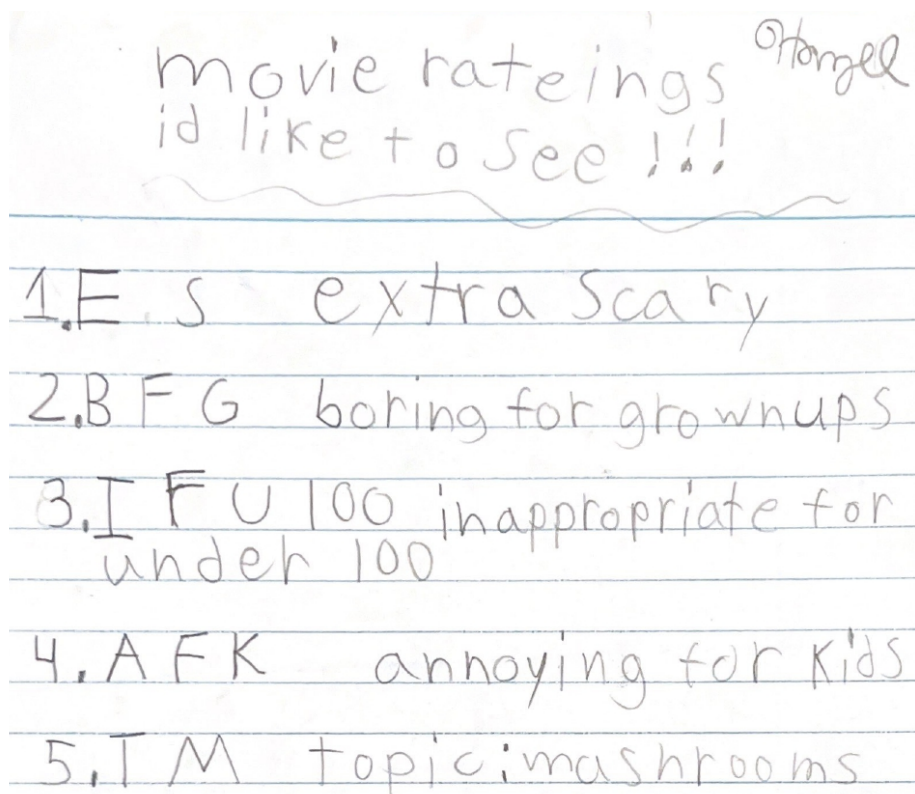 movie rateings
id like to see !!!
1. E. S extra scary
2. B F G boring for grownups
3. I F U 100 inappropriate for
under 100
4. A F K annoying for kids
5. T M topic: mashrooms